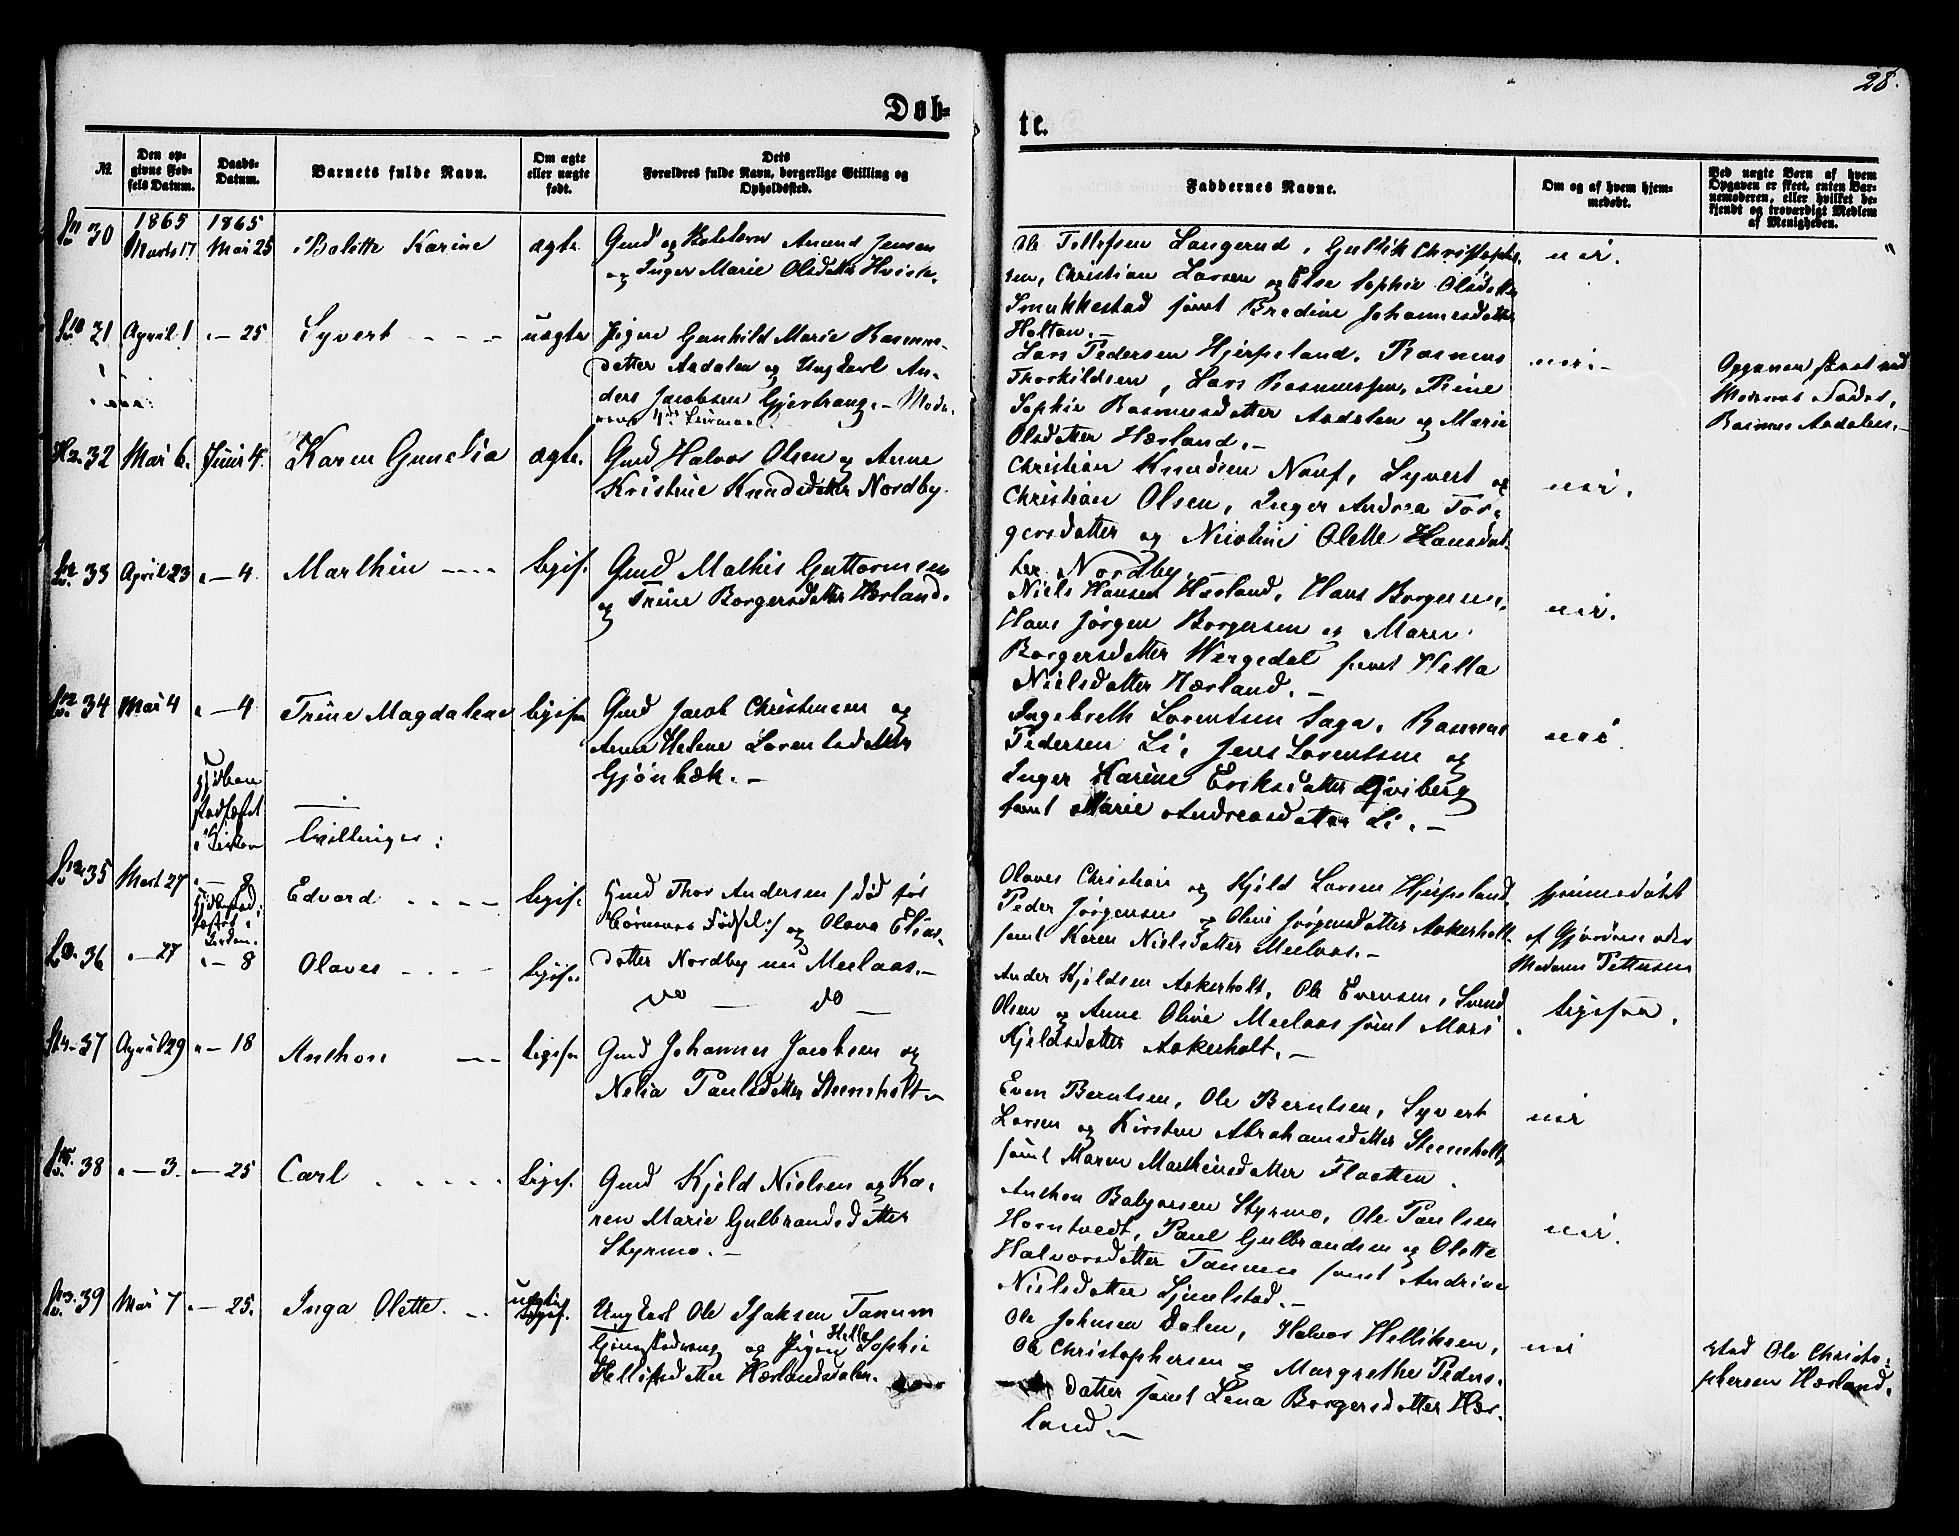 28.
Døb-
te.
№
Den op-
givne Fød-
sels Datum.
Daabs-
Datum.
Barnets fulde Navn.
Om ægte
eller uægte
født.
Dets
Forældres fulde Navn, borgerlige Stilling og
Opholdssted.
Faddernes Navne.
Om og af hvem hjem-
medøbt.
Ved uægte Børn af hvem
Opgaven er skeet, enten Bar-
nemoderen, eller hvilket be-
kjendt og troværdigt Medlem
af Menigheden.
1865 1865
30 Marts 17 Mai 25 Bolette Karine ægte
Gmd og Anund Jensen
og Inger Marie Olsdatter
Ole Tollefsen Langerud, Gullik Christophe
sen, Christian Larsen og Else Sophie Olsdatter
Smukkestad samt Bredine Johannesdatter
Holtan.-
nei.
31 April 1 "-25 Syvert - - - uægte
Pigen Gunhild Marie Rasmus-
datter Aadalen og Ungkarl An-
ders Jacobsen Gjertrang.- Mode-
rens 4de
Lars Pedersen Hjerpeland, Rasmus
Thorkildsen, Lars Rasmussen, Trine
Sophie Rasmusdatter Aadalen og Marie
Olsdatter Hærland.-
nei.-
Opgaven skeet ved
Moderens Fader,
Rasmus Aadalen.-
32 Mai 6. Juni 4. Karen Gunelia ægte.
Gmd Halvor Olsen og Anne
Kristine Knudsdatter Nordby.
Christian Knudsen Nauf, Syvert og
Christian Olsen, Inger Andrea Tor-
gersdatter og Nicoline Olette Hansdat-
ter Nordby.
nei.
33 April 23 "-4. Marthin - - - liges.
Gmd Mathis Guttormsen
og Trine Borgersdatter Hærland.
Niels Hansen Hærland, Hans Borgersen,
Hans Jørgen Borgersen og Maren
Borgersdatter Wergedal samt Hella
Nielsdatter Hærland.-
nei.
34 Mai 4 "-4 Trine Magdalene ligesaa
Gmd Jacob Christensen og
Anne Helene Lorentsdatter
Gjønbæk.-
Ingebreth Lorentsen Saga, Rasmus
Pedersen Li, Jens Lorentsen og
Inger Karine Eriksdatter Qviberg
samt Marie Andreasdatter Li.-
nei
Tvillinger:
35 Mart 27 "-8 Edvard - - - ligis.
Gmd Thor Andersen /: død før
Børnenes Fødsel :/ og Olava Elias-
datter Nordby nu Meelaas.-
Olaves Christian og Kjeld Larsen Hjerpeland,
Peder Jørgensen og Oline Jørgensdatter Aakerholt
samt Karen Nielsdatter Meelaas.-
hjemmedøbt
af Gjordmoder
Madame Pettersen
36 "-27 "-8 Olaves - - - ligis.
do - do -
Ander Kjeldsen Aakerholt, Ole Evensen, Svend
Olsen og Anne Olive Meelaas samt Mari
Kjeldsdatter Aakerholt.-
ligesaa.
37 April 29 "-18 Anthon - - ligesaa
Gmd Johannes Jacobsen og
Nelia Paulsdatter Steensholt.-
Even Berntsen, Ole Berntsen, Syvert
Larsen og Kirsten Abrahamsdatter Steensholt
samt Maren Mathisdatter Flaatten.
nei
38 "-3. "-25 Carl . . . . . ligis.
Gmd Kjeld Nielsen og Ka-
ren Marie Gulbrandsdatter
Styrmo.-
Anthon Styrmo, Ole Paulsen
Horntvedt, Paul Gulbrandsen og Olette
Halvorsdatter Tannes samt Andrine
Nielsdatter Ljuelstad.-
nei.
39 Mai 7 "-25. Inga Olette. - - uægte
Ungkarl Ole Isaksen Tanum
og Pigen Helle Sophie
Helliksdatter Hærlandsdalen.
Ole Johnsen Dalen, Halvor Helliksen,
Ole Christophersen og Margrethe Peders-
datter samt Lena Borgersdatter Hær-
land.-
nei
ved Ole Christo-
phersen Hærland.